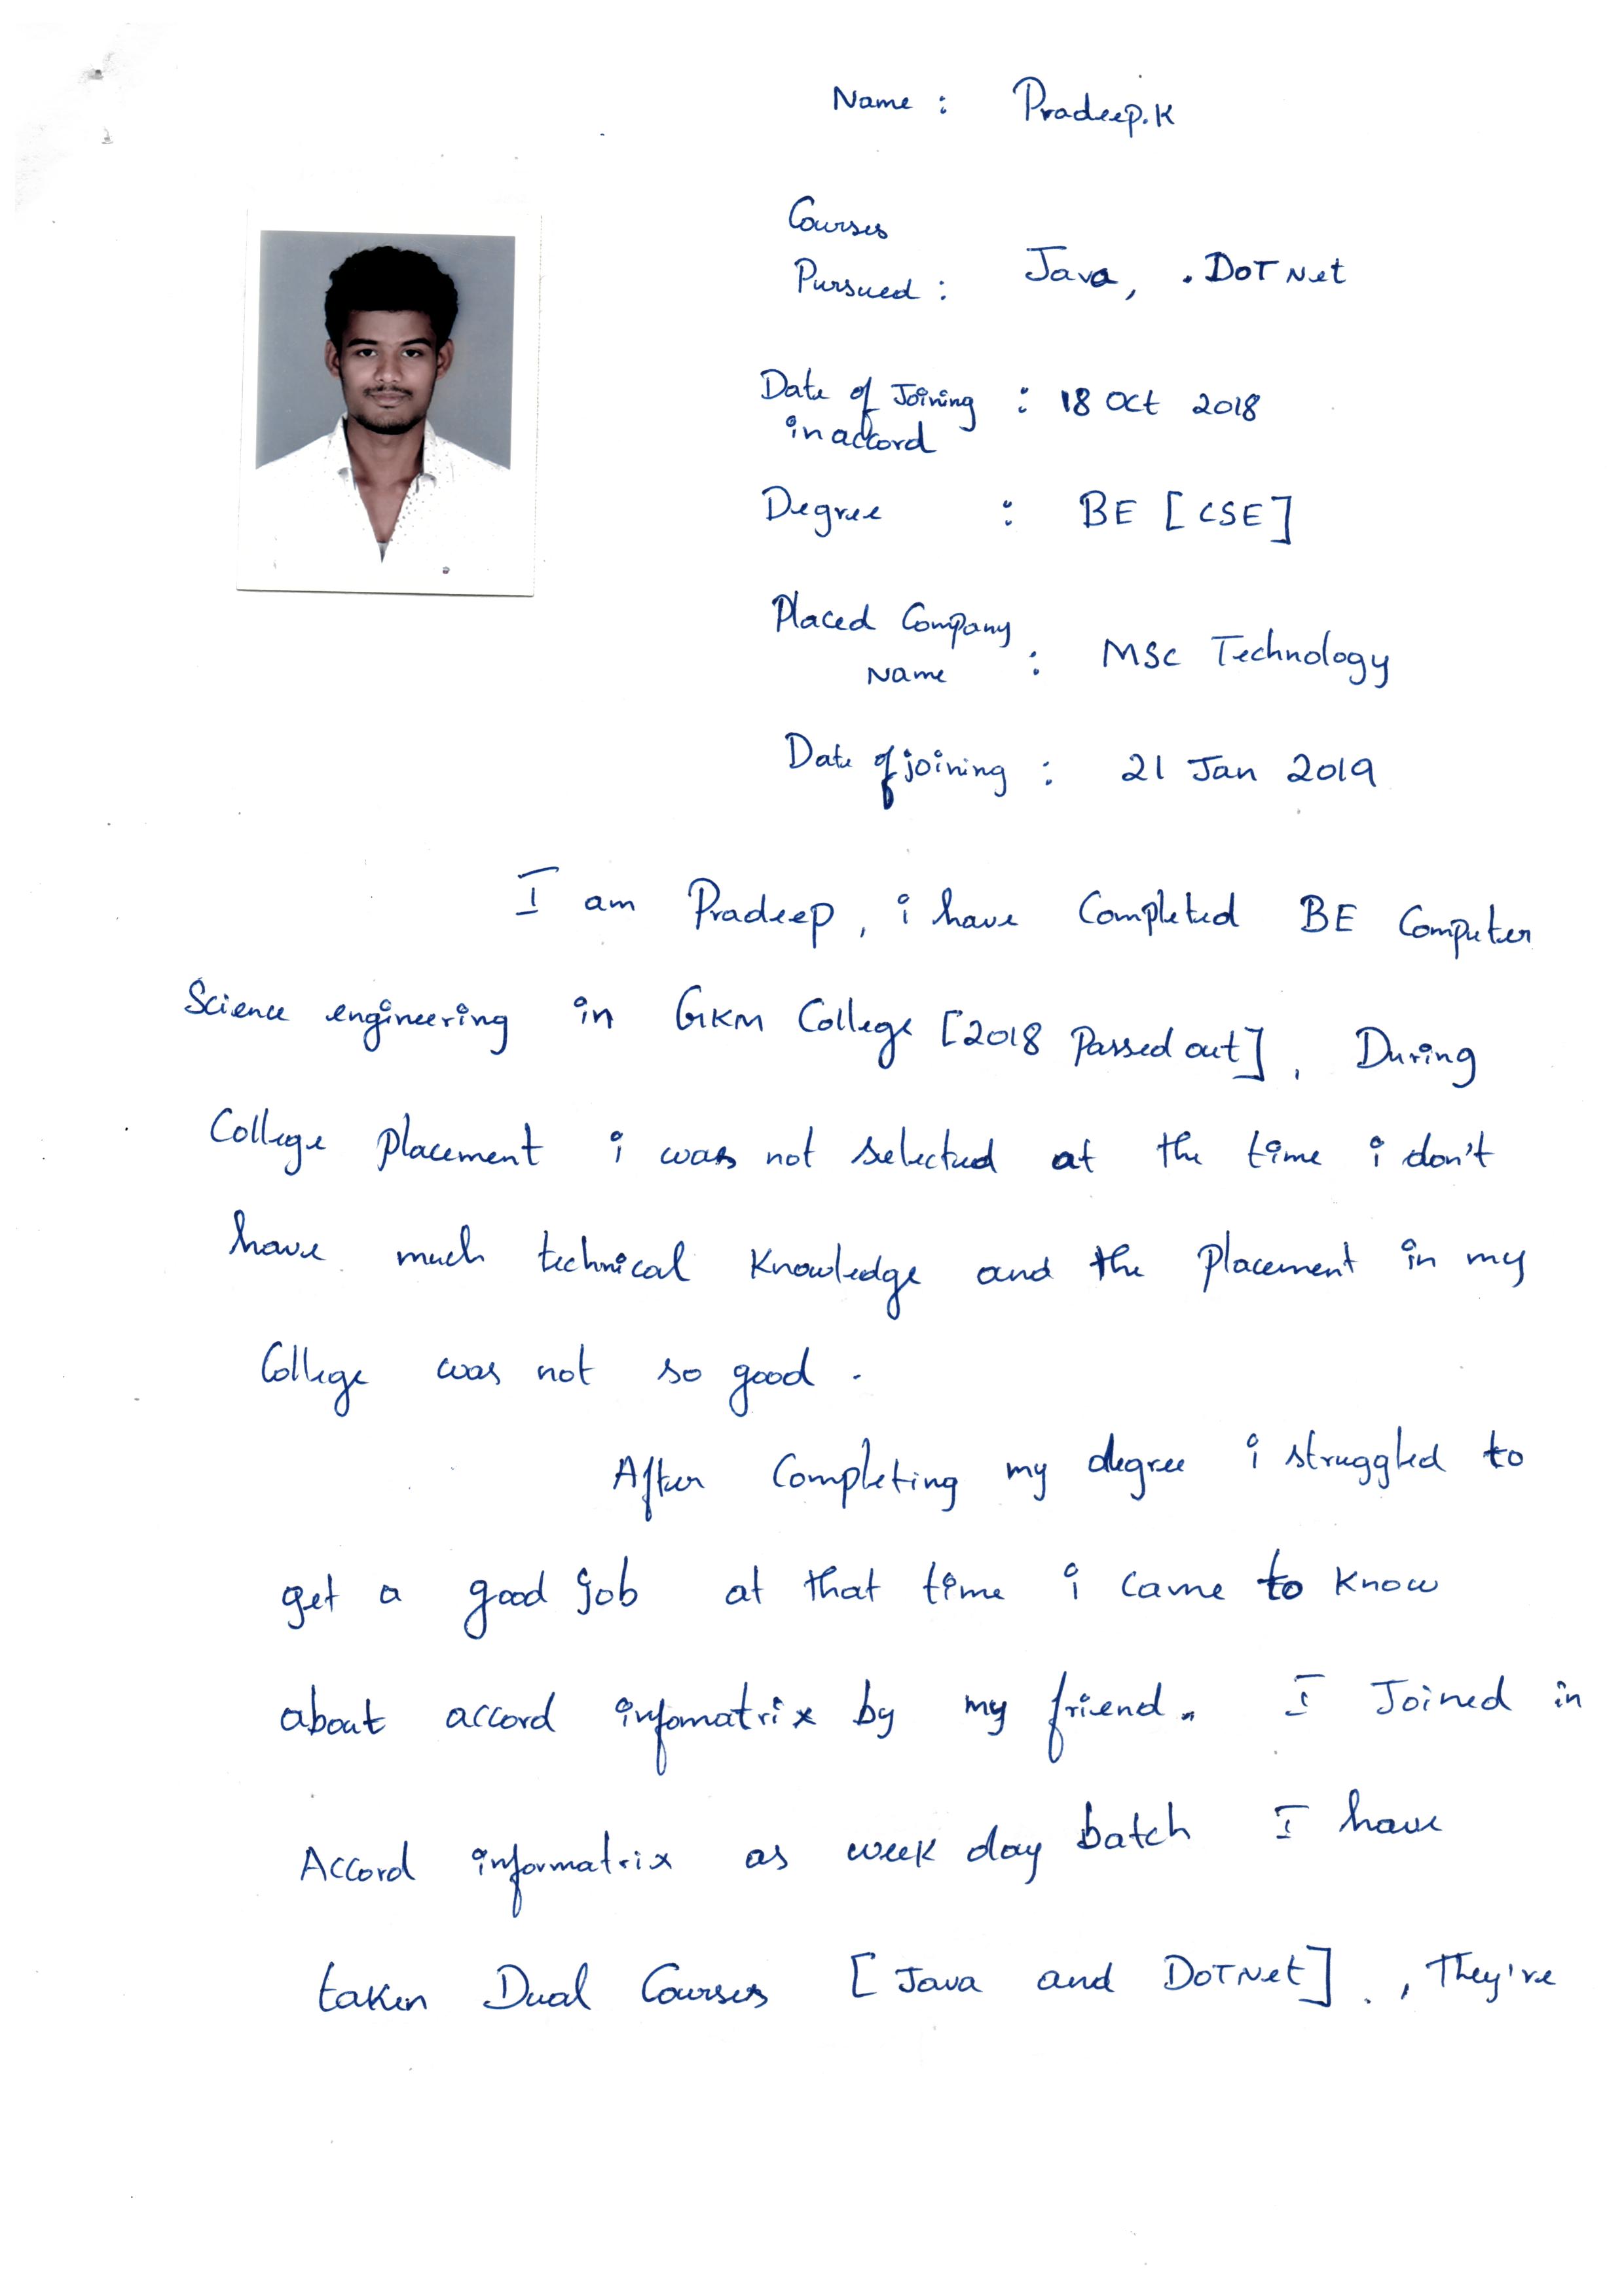 Name : Pradeep.K
Courses
Pursued : Java, .DOT Net
Date of Joining : 18 Oct 2018
in accord
Degree : BE [CSE]
Placed Company
Name : MSC Technology
Date of joining : 21 Jan 2019
I am Pradeep, i have Completed BE Computer
Science engineering in GKM College [2018 Passed out], During
College placement i was not selected at the time i don't
have much technical Knowledge and the placement in my
College was not so good.
After Completing my degree i struggled to
get a good job at that time i came to Know
about accord infomatrix by my friend. I Joined in
Accord informatrix as week day batch I have
taken Dual Courses [Java and DOTNet]., They've